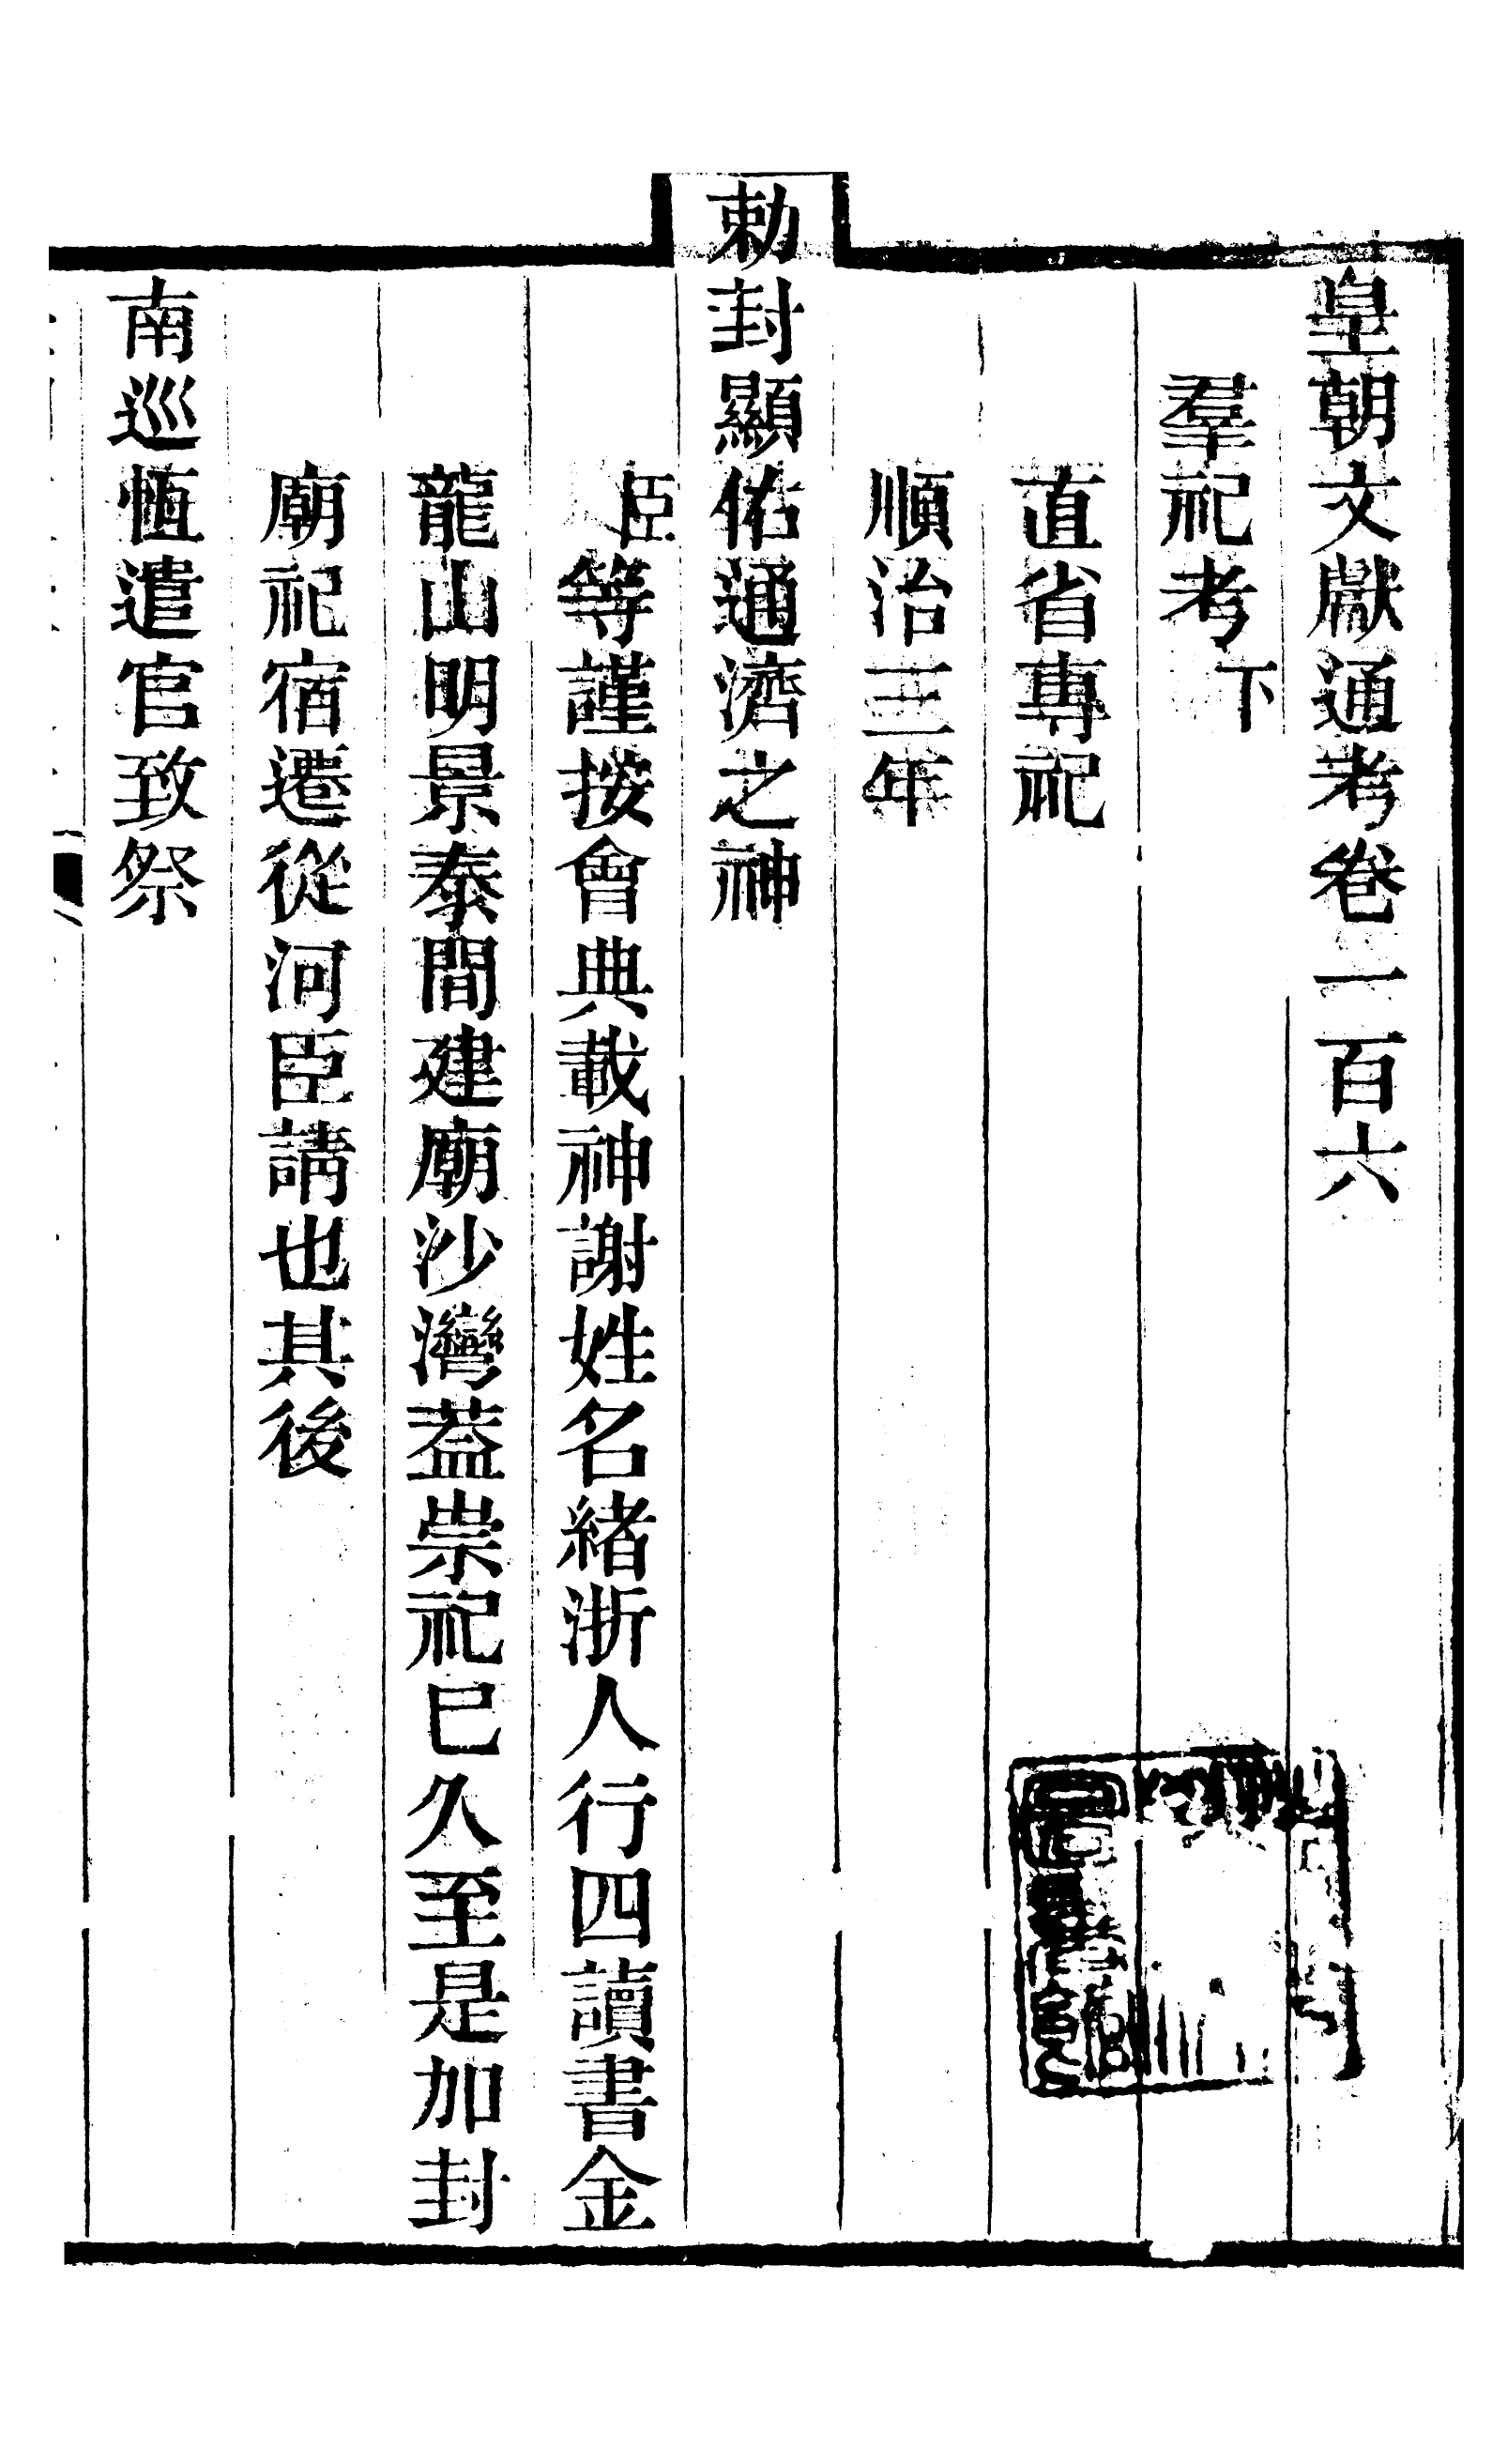 皇朝文獻通考卷一百六
羣祀考下
直省專祀
順治三年
勅封顯佑通濟之神
臣等謹按會典載神謝姓名緒浙人行四讀書金
龍山明景泰間建廟沙灣蓋崇祀已久至是加封
廟祀宿遷從河臣請也其後
南巡恆遣官致祭